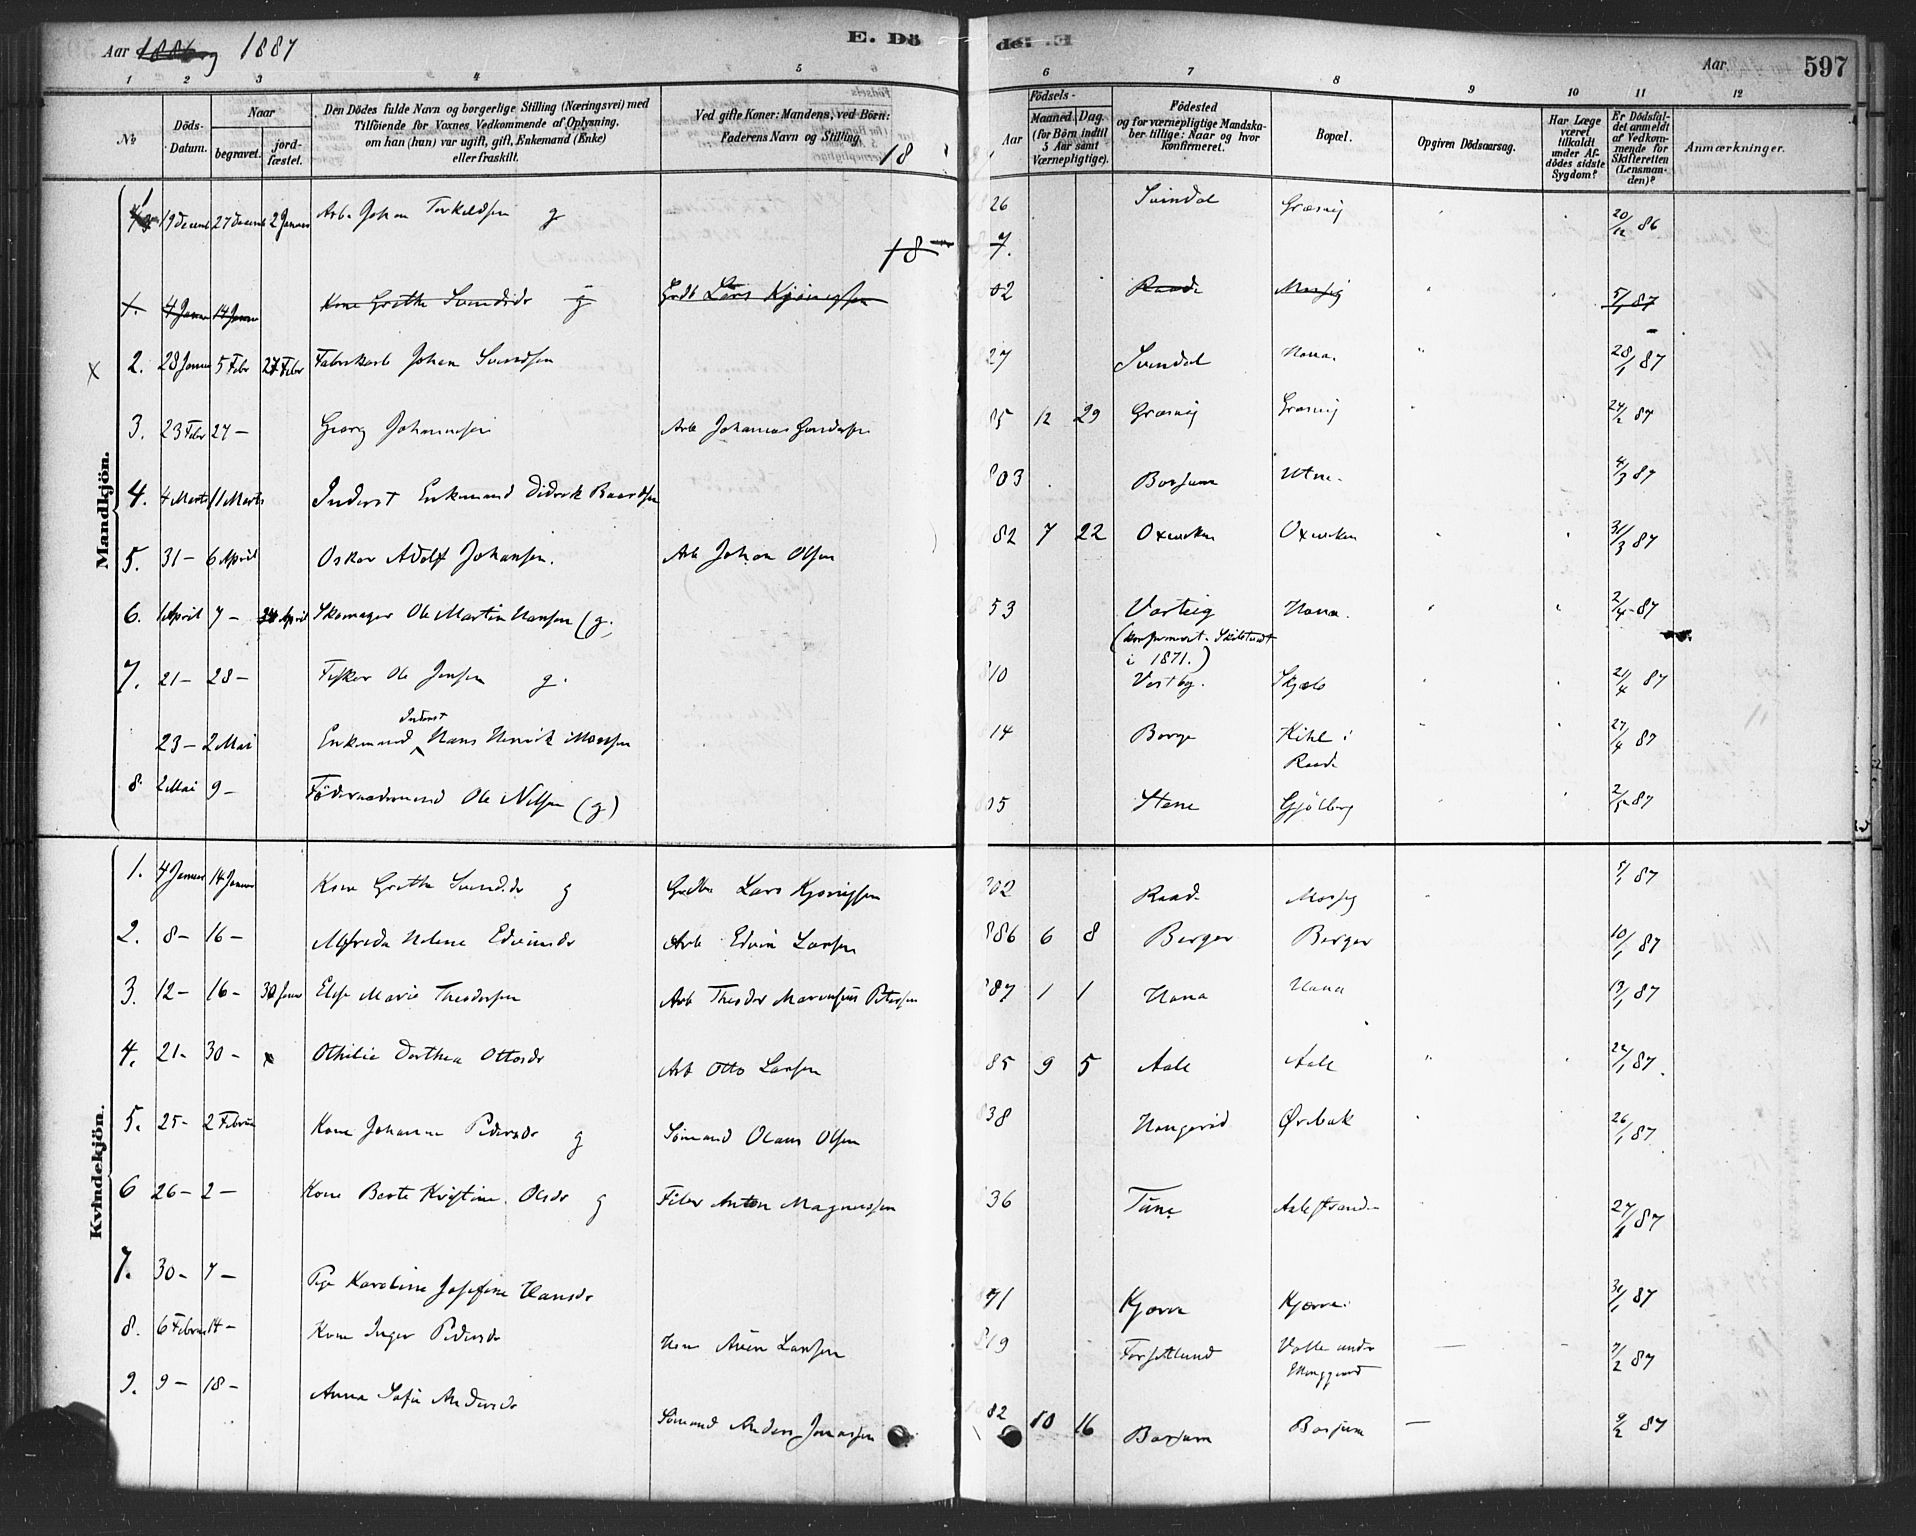 Aar 1886 og 1887
E. Dö
de. .E
Aar
597
1 2 3 4 5 6 7 8 9 10 11 12
№
Döds-Datum.
Naar
begravet.
jord-fæstet.
Den Dödes fulde Navn og borgerlige Stilling (Næringsvei) med
Tilföiende for Voxnes Vedkommende af Oplysning,
om han (hun) var ugift, gift, Enkemand (Enke)
eller fraskilt.
Ved gifte Koner: Mandens, ved Börn:
Faderens Navn og Stilling.
18
Födsels-
Aar
Maaned. Dag.
(for Börn indtil
5 Aar samt
Værnepligtige).
Födested
og for værnepligtige Mandska-
ber tillige: Naar og hvor
konfirmeret.
Bopæl.
Opgiven Dödsaarsag.
Har Læge
været
tilkaldt
under Af-
dödes sidste
Sygdom?
Er Dödsfal-
det anmeldt
af Vedkom-
mende for
Skifteretten
(Lensman-
den)?
Anmærkninger.
Mandkjön.
19 Decemb 27 Decemb 2 Januar Arb. Johan Torkildsen g 26 Svindal Græsvig 20/12 86
18 7.
1. 4 Januar 14 Januar Kone Grethe Svendsdr g Grdb Lars Kjönigsen 02 Raade Mossig 5/1 87
x 2. 28 Januar 5 Febr 27 Febr Fabrikarb Johan Svendsen 27 Svindal Hana. 28/1 87
3. 23 Febr 27 – Georg Johannesen Arb Johannes Gundersen 85 12 29 Græsvig Græsvig 24/2 87
4. 4 Marts 11 Marts Inderst Enkemand Didrik Baardsen 803 Borjum Utne. 4/3 87
5. 31 – 6 April Oskar Adolf Johansen. Arb Johan Olsen 82 7 22 Oxeviken Oxeviken 31/3 87
6. 1 April 7 – 24 April Skomager Ole Martin Hansen (g. 53 Varteig Hana. 2/4 87
(konfirmeret. Skibtvedt
i 1871.)
7. 21 – 28 – Fisker Ole Jensen g. 810 Vestby. Skjælø 21/4 87
23 – 2 Mai Enkemand Inderst Hans Henrik Monsen 14 Borge Kihl i 27/4 87
Raade
8. 2 Mai 9 – Föderaadsmand Ole Nilsen (g) 05 Stene Gjölberg 2/5 87
Kvindekjön.
1. 4 Januar 14 Januar Kone Grethe Svendsdr g Grdbr Lars Kjönigsen 802 Raade Mossig 5/1 87
2. 8 – 16 – Alfreda Helene Edvinsdr Arb Edvin Larsen 886 6 8 Berger Berger 10/1 87
3. 12 – 16 – 30 Januar Else Marie Theodorsen Arb Theodor Marensius Petersen 87 1 1 Hana Hana 13/1 87
4. 21 – 30 – x Othilie Dorthea Ottosdr Arb Otto Larsen 85 9 5 Aale Aale 22/1 87.
5. 25 – 2 Februar Kone Johanne Pedersdr g Sömand Olaus Olsen 838 Haugerød Ørebæk 26/1 87.
6 26 – 2 – Kone Berte Kristine Olsdr g Filer Anton Magnussen 36 Tune Aalestrand 27/1 87
7. 30 – 7 – Pige Karoline Josefine Hansdr 71 Kjærra Kjærra. 31/1 87
8. 6 Februar 14 – Kone Inger Pedersdr Hsm Aven Larsen 819 Forsetlund Valle under 7/2 87
Hauggaard
9. 9 – 18 – Anna Sofie Andersdr Sömand Anders Jonassen 82 10 16 Borjum Borjum 9/2 87